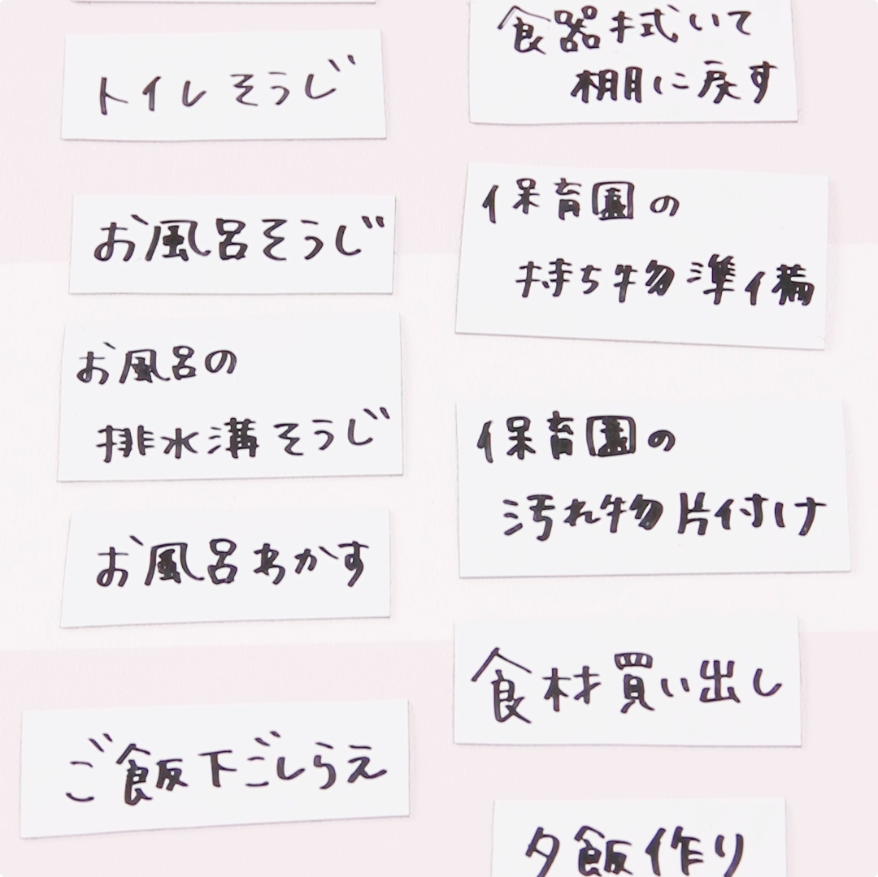 トイレそうじ
お風呂そうじ
お風呂の
排水溝そうじ
お風呂わかす
ご飯下ごしらえ
食器拭いて
棚に戻す
保育園の
持ち物準備
保育園の
汚れ物片付け
食材買い出し
夕飯作り